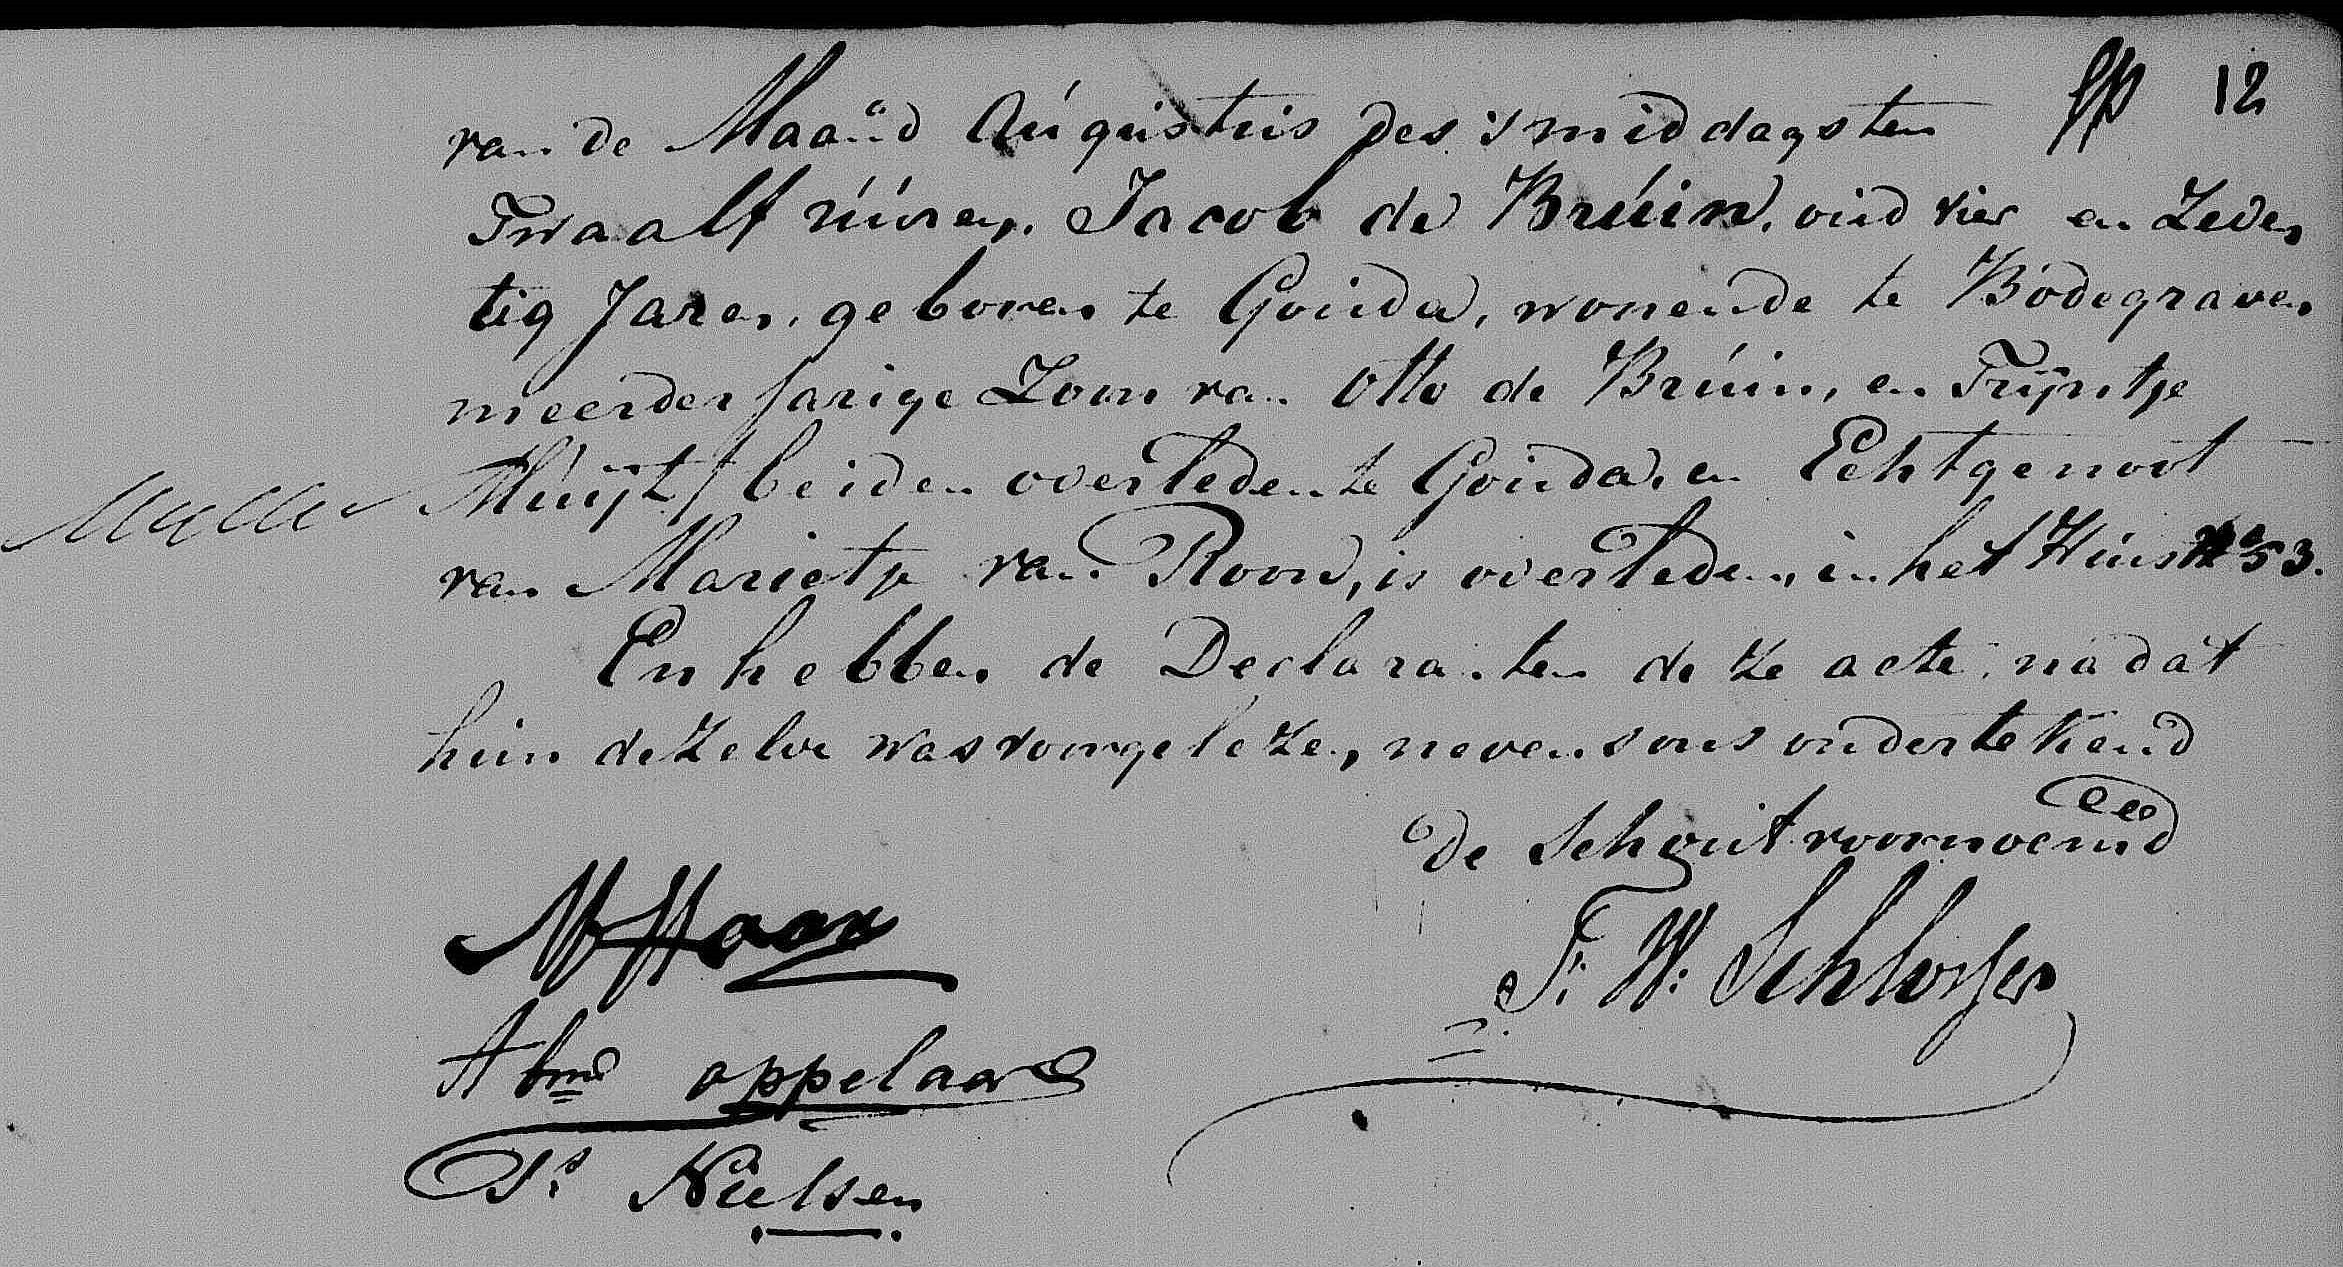 12
van de Maand Augustus des smiddagsten
Twaalf uuren, Jacob de Bruin, oud vier en Zeven
tig Jaren, geboren te Gouda, wonende te Bodegraven
meerderjarige Zoon van Otto de Bruin, en Trijntje
Muijt, beiden overleden te Gouda, en Echtgenoot
van Marietje van Rood, is overleden, in het Huis No 53.
En hebben de Declaranten deze acte, nadat
hun dezelve was voorgelezen, nevens ons ondertekend
De Schout voornoemd
M Haar
F: W: Schlosser
Abm appelaar
Ps Nielsen